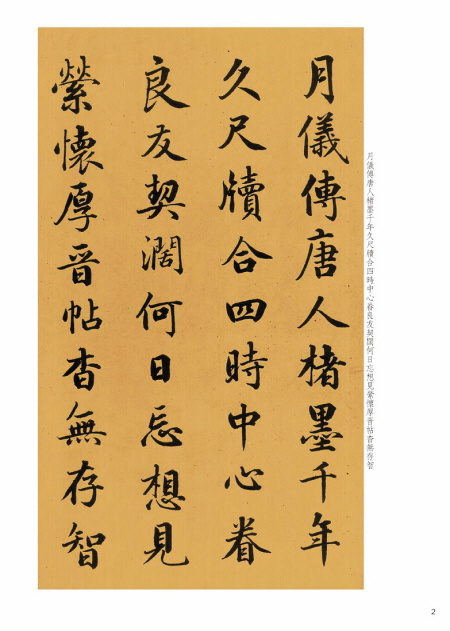 月儀傳唐人楮墨千年
久尺牘合四時中心眷
良友契濶何日忘想見
縈懷厚晋帖杳無存智
月儀傳唐人楮墨千年久尺牘合四時中心眷良友契闊何日忘想見縈懷厚晉帖杳無存智
2